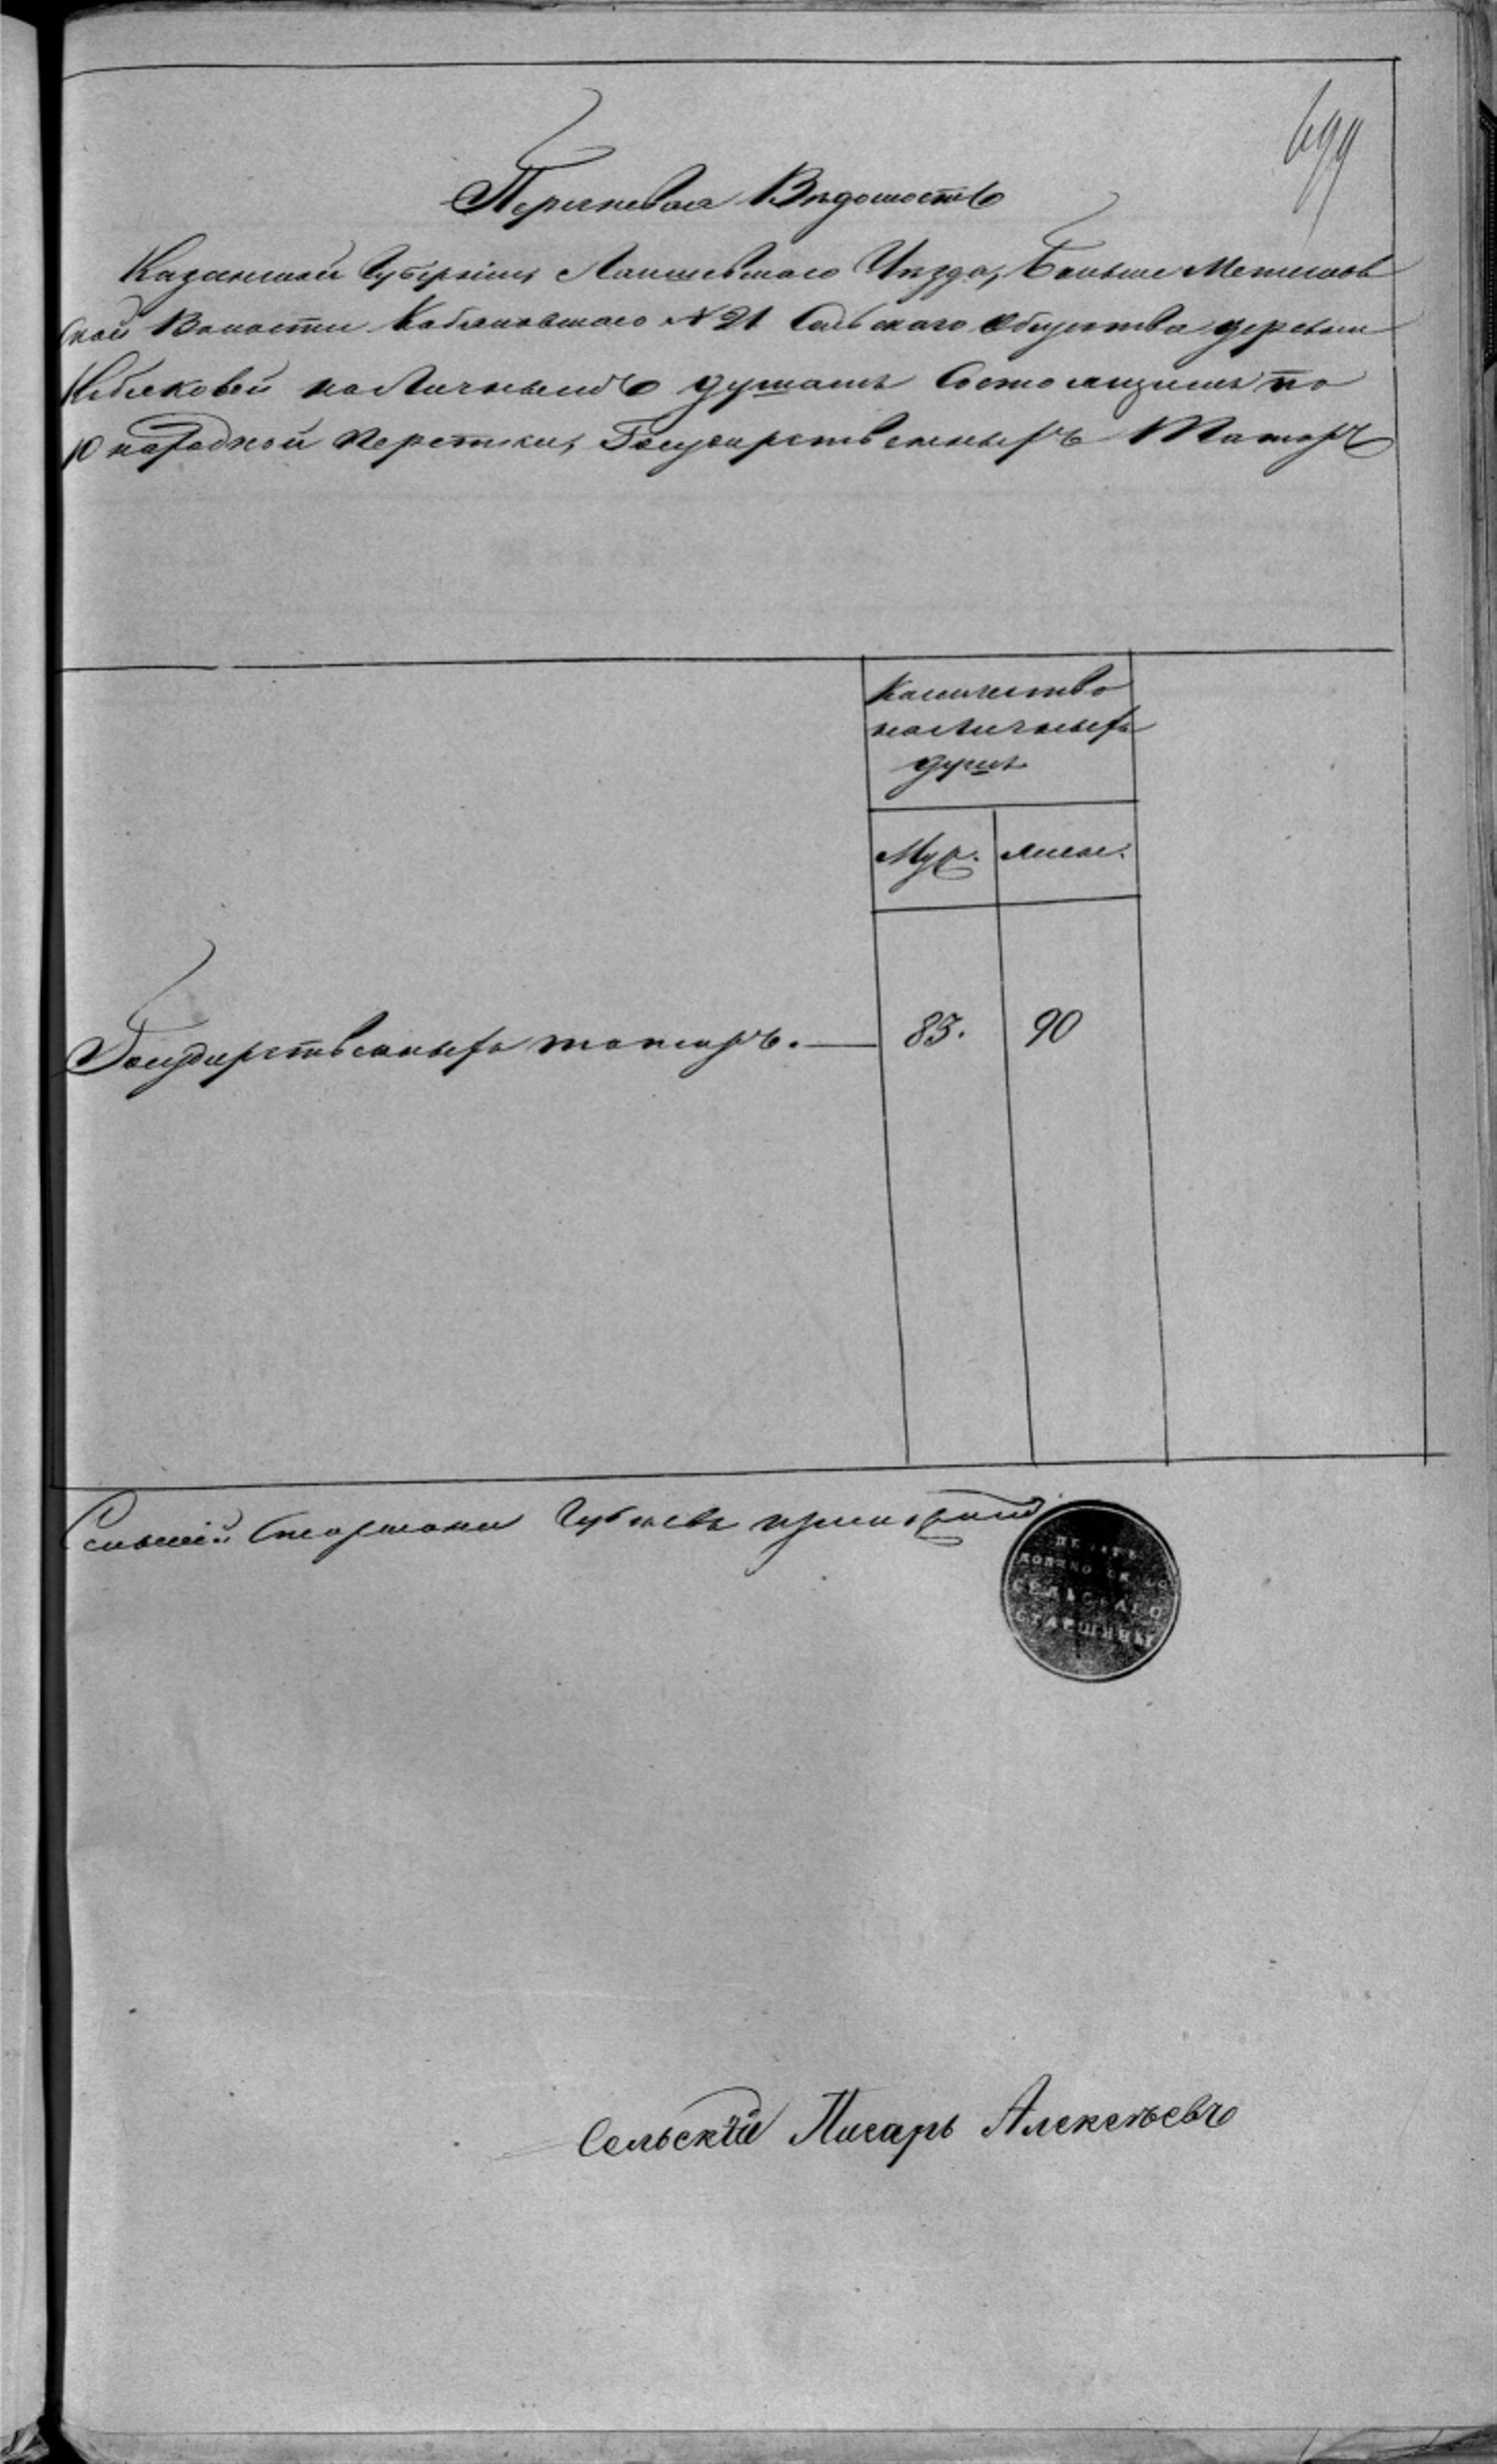 699
Перечневая Вѣдомость
Казанской Губерніи, Лаишевскаго Уѣзда, Больше Метесков
ской Волости Кобяковскаго №21 Сельскаго общества деревни
Кобяковой наличнымъ душамъ Состоящимъ по
10 народной переписи, Государственныхъ Татаръ
Количество
наличныхъ
душъ
Муж. женс.
Государственныхъ татаръ. — 83. 90
Сельскій Старшина Губаевъ
ПЕЧАТЬ
СЕЛЬСКАГО
СТАРШИНЫ
Сельскій Писарь Алексѣевъ